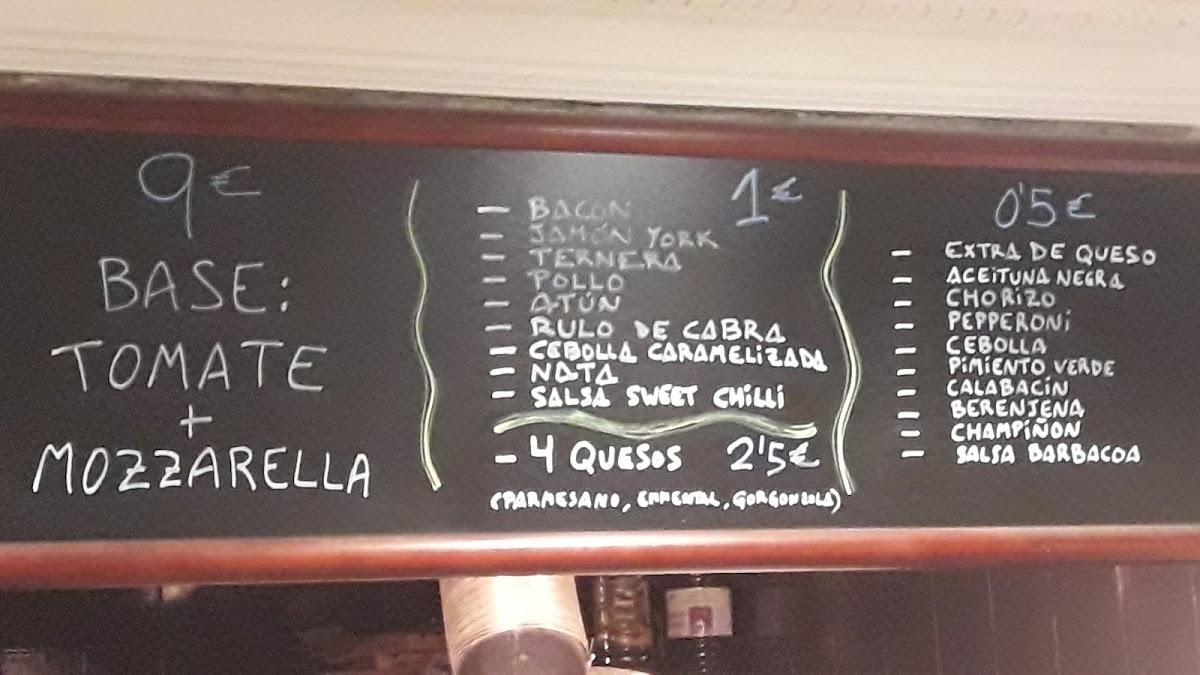 9€
BASE:
TOMATE
+
MOZZARELLA
1€
- BACON
- JAMÓN YORK
- TERNERA
- POLLO
- ATÚN
- RULO DE CABRA
- CEBOLLA CARAMELIZADA
- NATA
- SALSA SWEET CHILLI
- 4 QUESOS 2'5€
(PARMESANO, EMMENTAL, GORGONZOLA)
0'5€
- EXTRA DE QUESO
- ACEITUNA NEGRA
- CHORIZO
- PEPPERONI
- CEBOLLA
- PIMIENTO VERDE
- CALABACÍN
- BERENJENA
- CHAMPIÑON
- SALSA BARBACOA